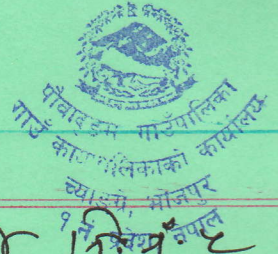 पौवादुङमा गाउँपालिका
गाउँ कार्यपालिकाको कार्यालय
च्याङग्रे, भोजपुर
१ नं. प्रदेश, नेपाल